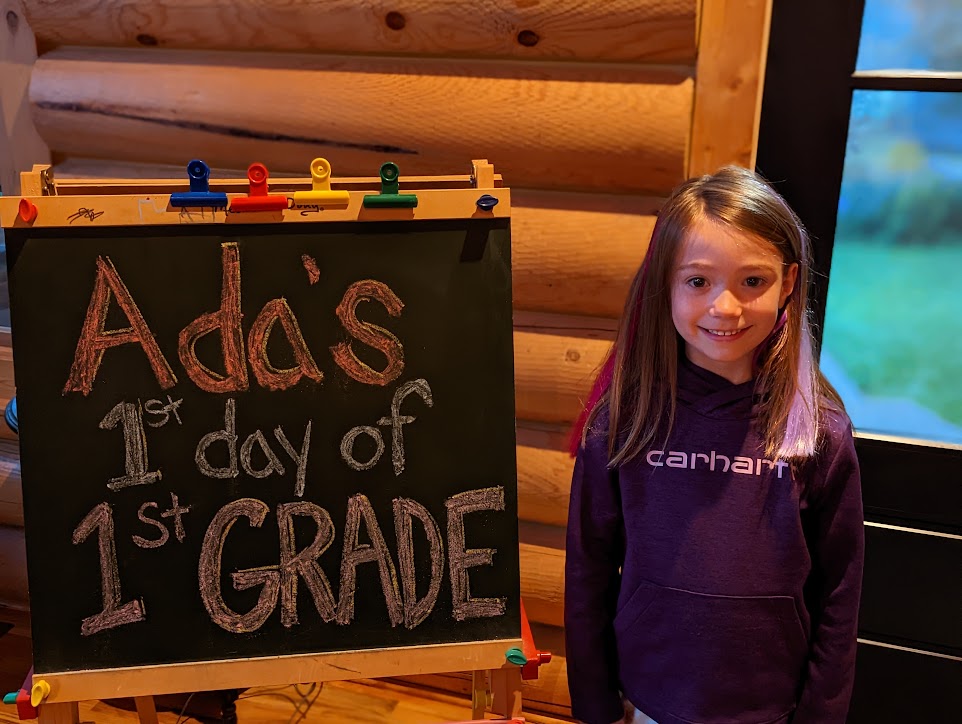 Ada's
1st day of
1st GRADE
carhartt